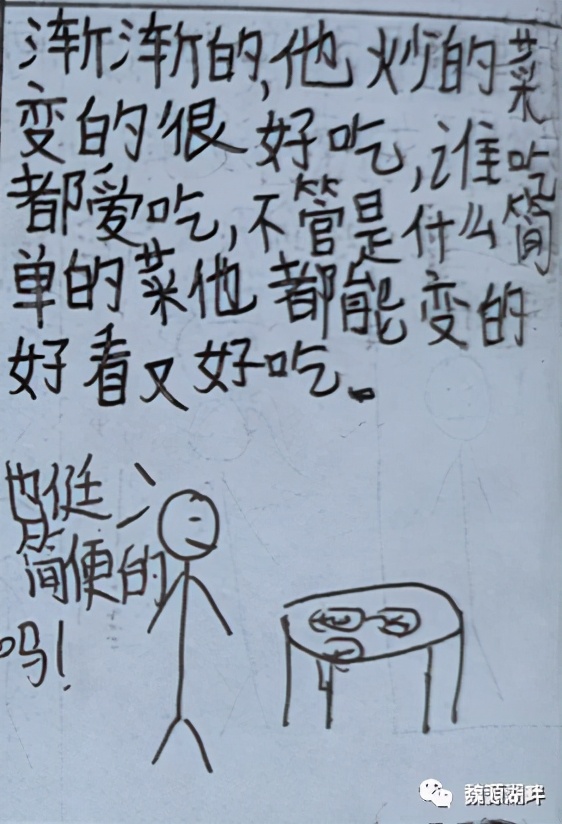 渐渐的,他炒的菜
变的很好吃,谁吃
都爱吃,不管是什么简
单的菜他都能变的
好看又好吃。
也挺
简便的
吗!
魏源湖畔